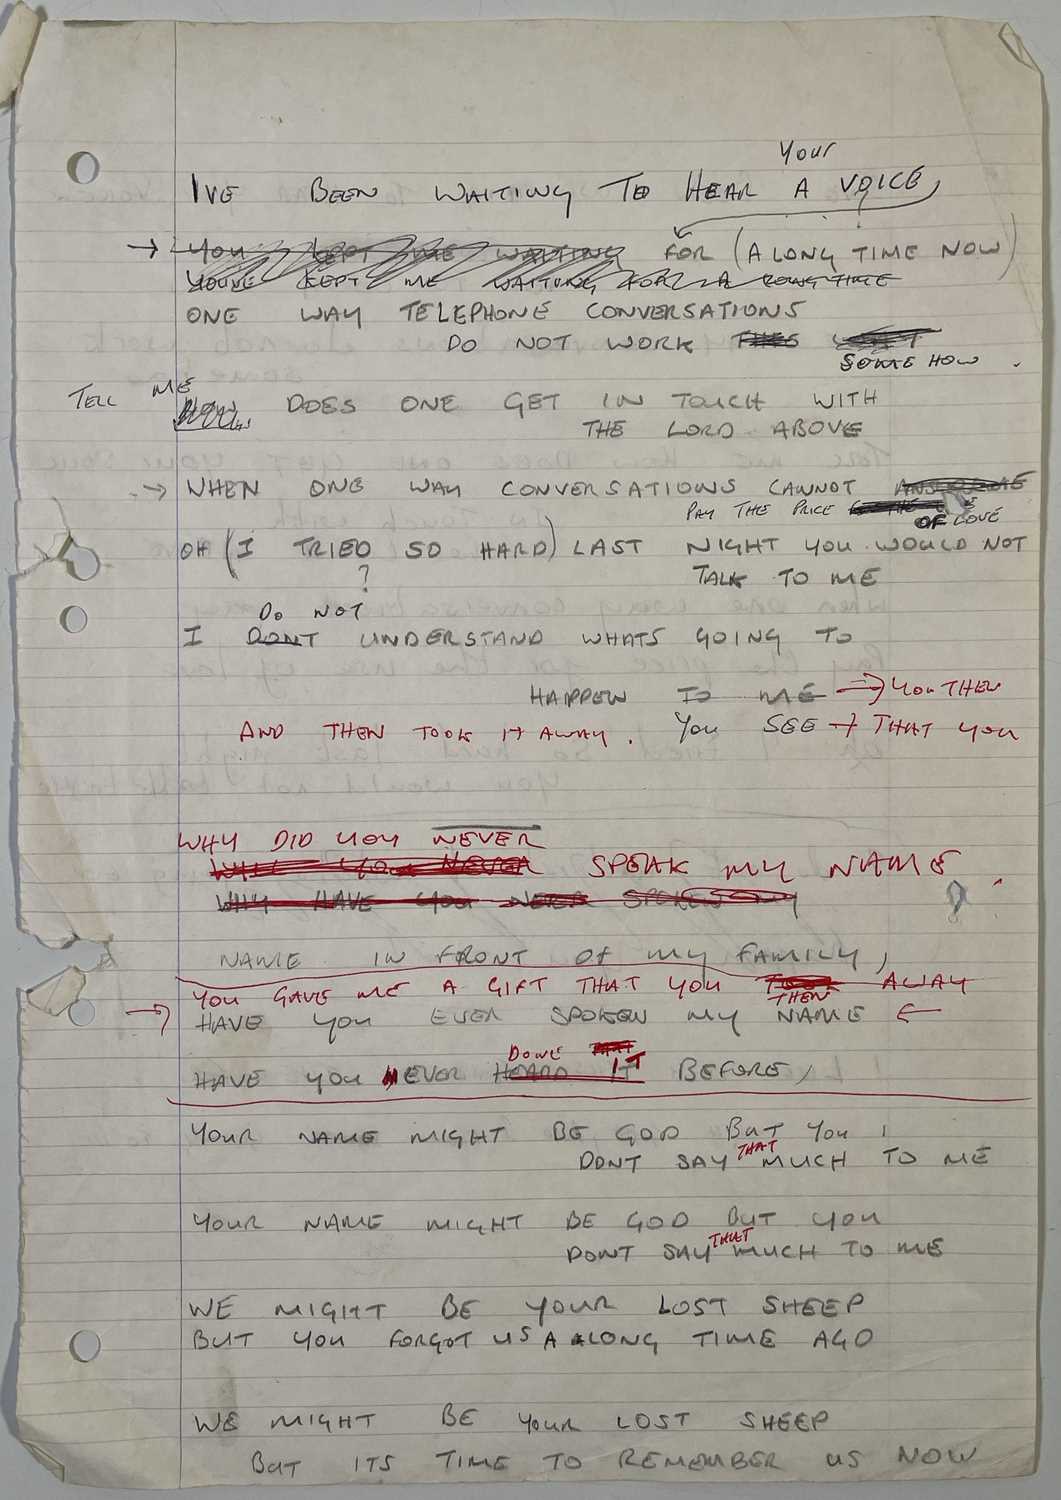 Your
I'VE BEEN WAITING TO HEAR A VOICE,
YOU KEPT ME WAITING FOR (A LONG TIME NOW)
YOUVE KEPT ME WAITING FOR A LONG TIME
ONE WAY TELEPHONE CONVERSATIONS
DO NOT WORK THIS
SOME HOW.
TELL ME
HOW DOES ONE GET IN TOUCH WITH
THE LORD ABOVE
WHEN ONE WAY CONVERSATIONS CANNOT
PAY THE PRICE OF LOVE
OH (I TRIED SO HARD) LAST NIGHT YOU WOULD NOT
? TALK TO ME
DO NOT
I DONT UNDERSTAND WHATS GOING TO
HAPPEN TO ME → YOU THEN
AND THEN TOOK IT AWAY. YOU SEE → THAT YOU
WHY DID YOU NEVER
WILL YOU NEVER SPEAK MY NAME
WHY HAVE YOU NEVER SPOKEN MY ?
NAME IN FRONT OF MY FAMILY,
YOU GAVE ME A GIFT THAT YOU TOOK AWAY
THEN
HAVE YOU EVER SPOKEN MY NAME
DONE THAT
HAVE YOU NEVER HEARD IT BEFORE,
YOUR NAME MIGHT BE GOD BUT YOU
DONT SAY THAT MUCH TO ME
YOUR NAME MIGHT BE GOD BUT YOU
DONT SAY THAT MUCH TO ME
WE MIGHT BE YOUR LOST SHEEP
BUT YOU FORGOT US A LONG TIME AGO
WE MIGHT BE YOUR LOST SHEEP
BUT ITS TIME TO REMEMBER US NOW